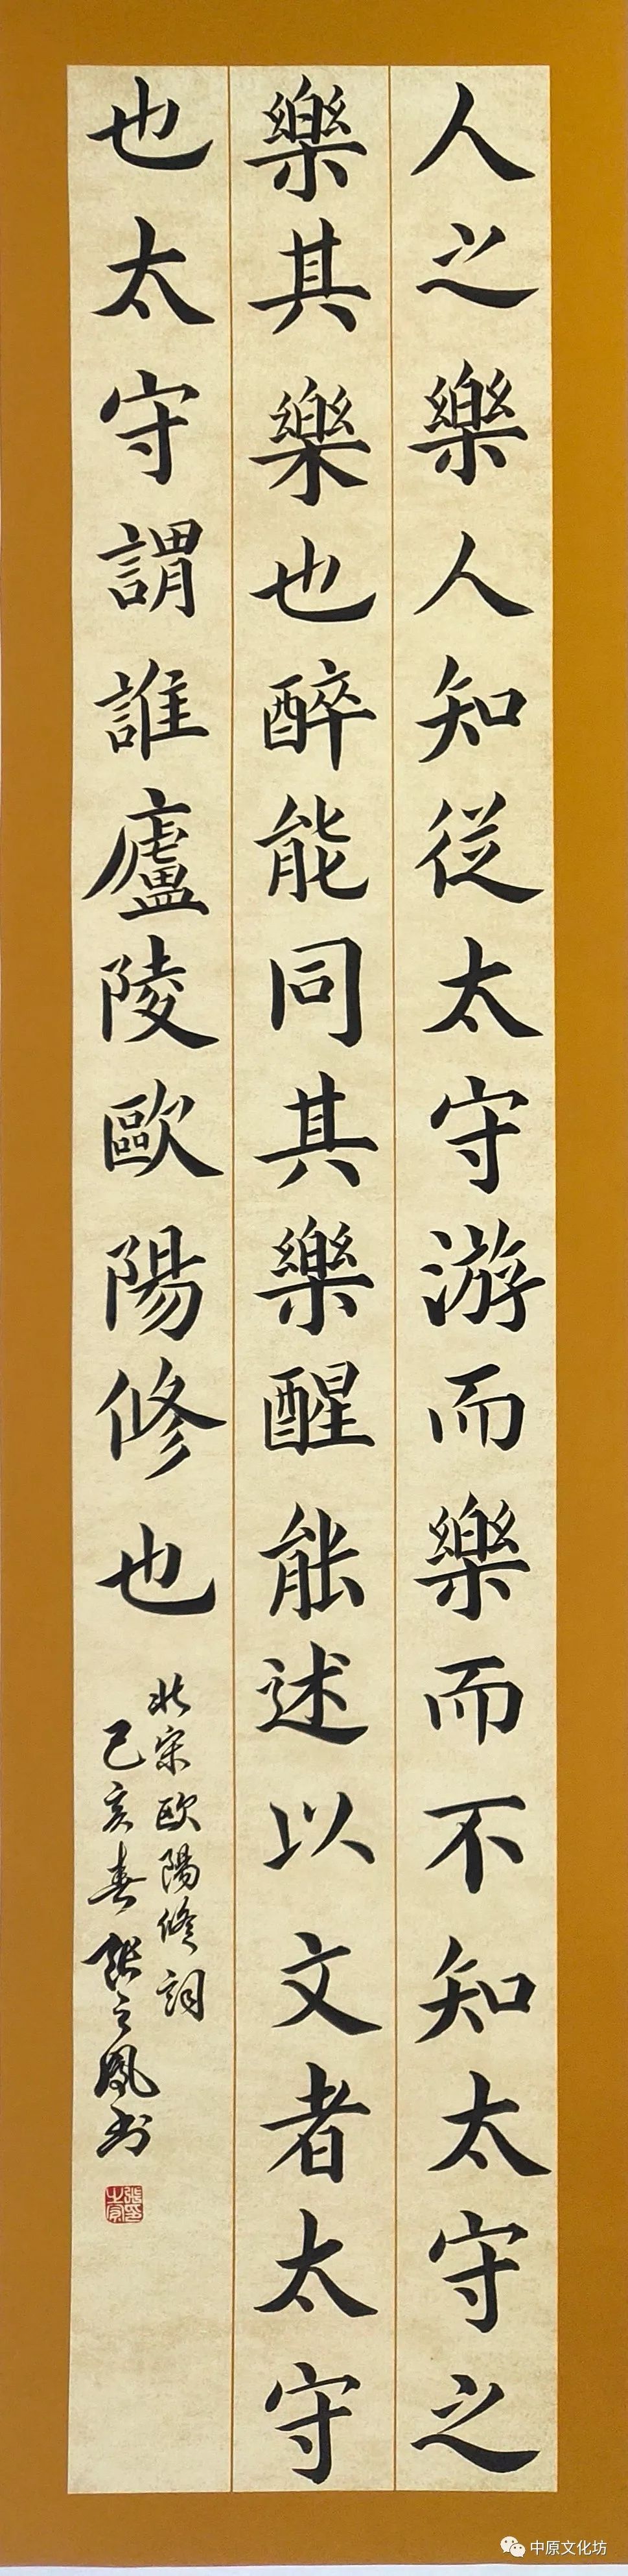 人之樂人知從太守游而樂而不知太守之
樂其樂也醉能同其樂醒能述以文者太守
也太守謂誰廬陵歐陽修也
北宋歐陽修詞
己亥春張之鳳书
中原文化坊